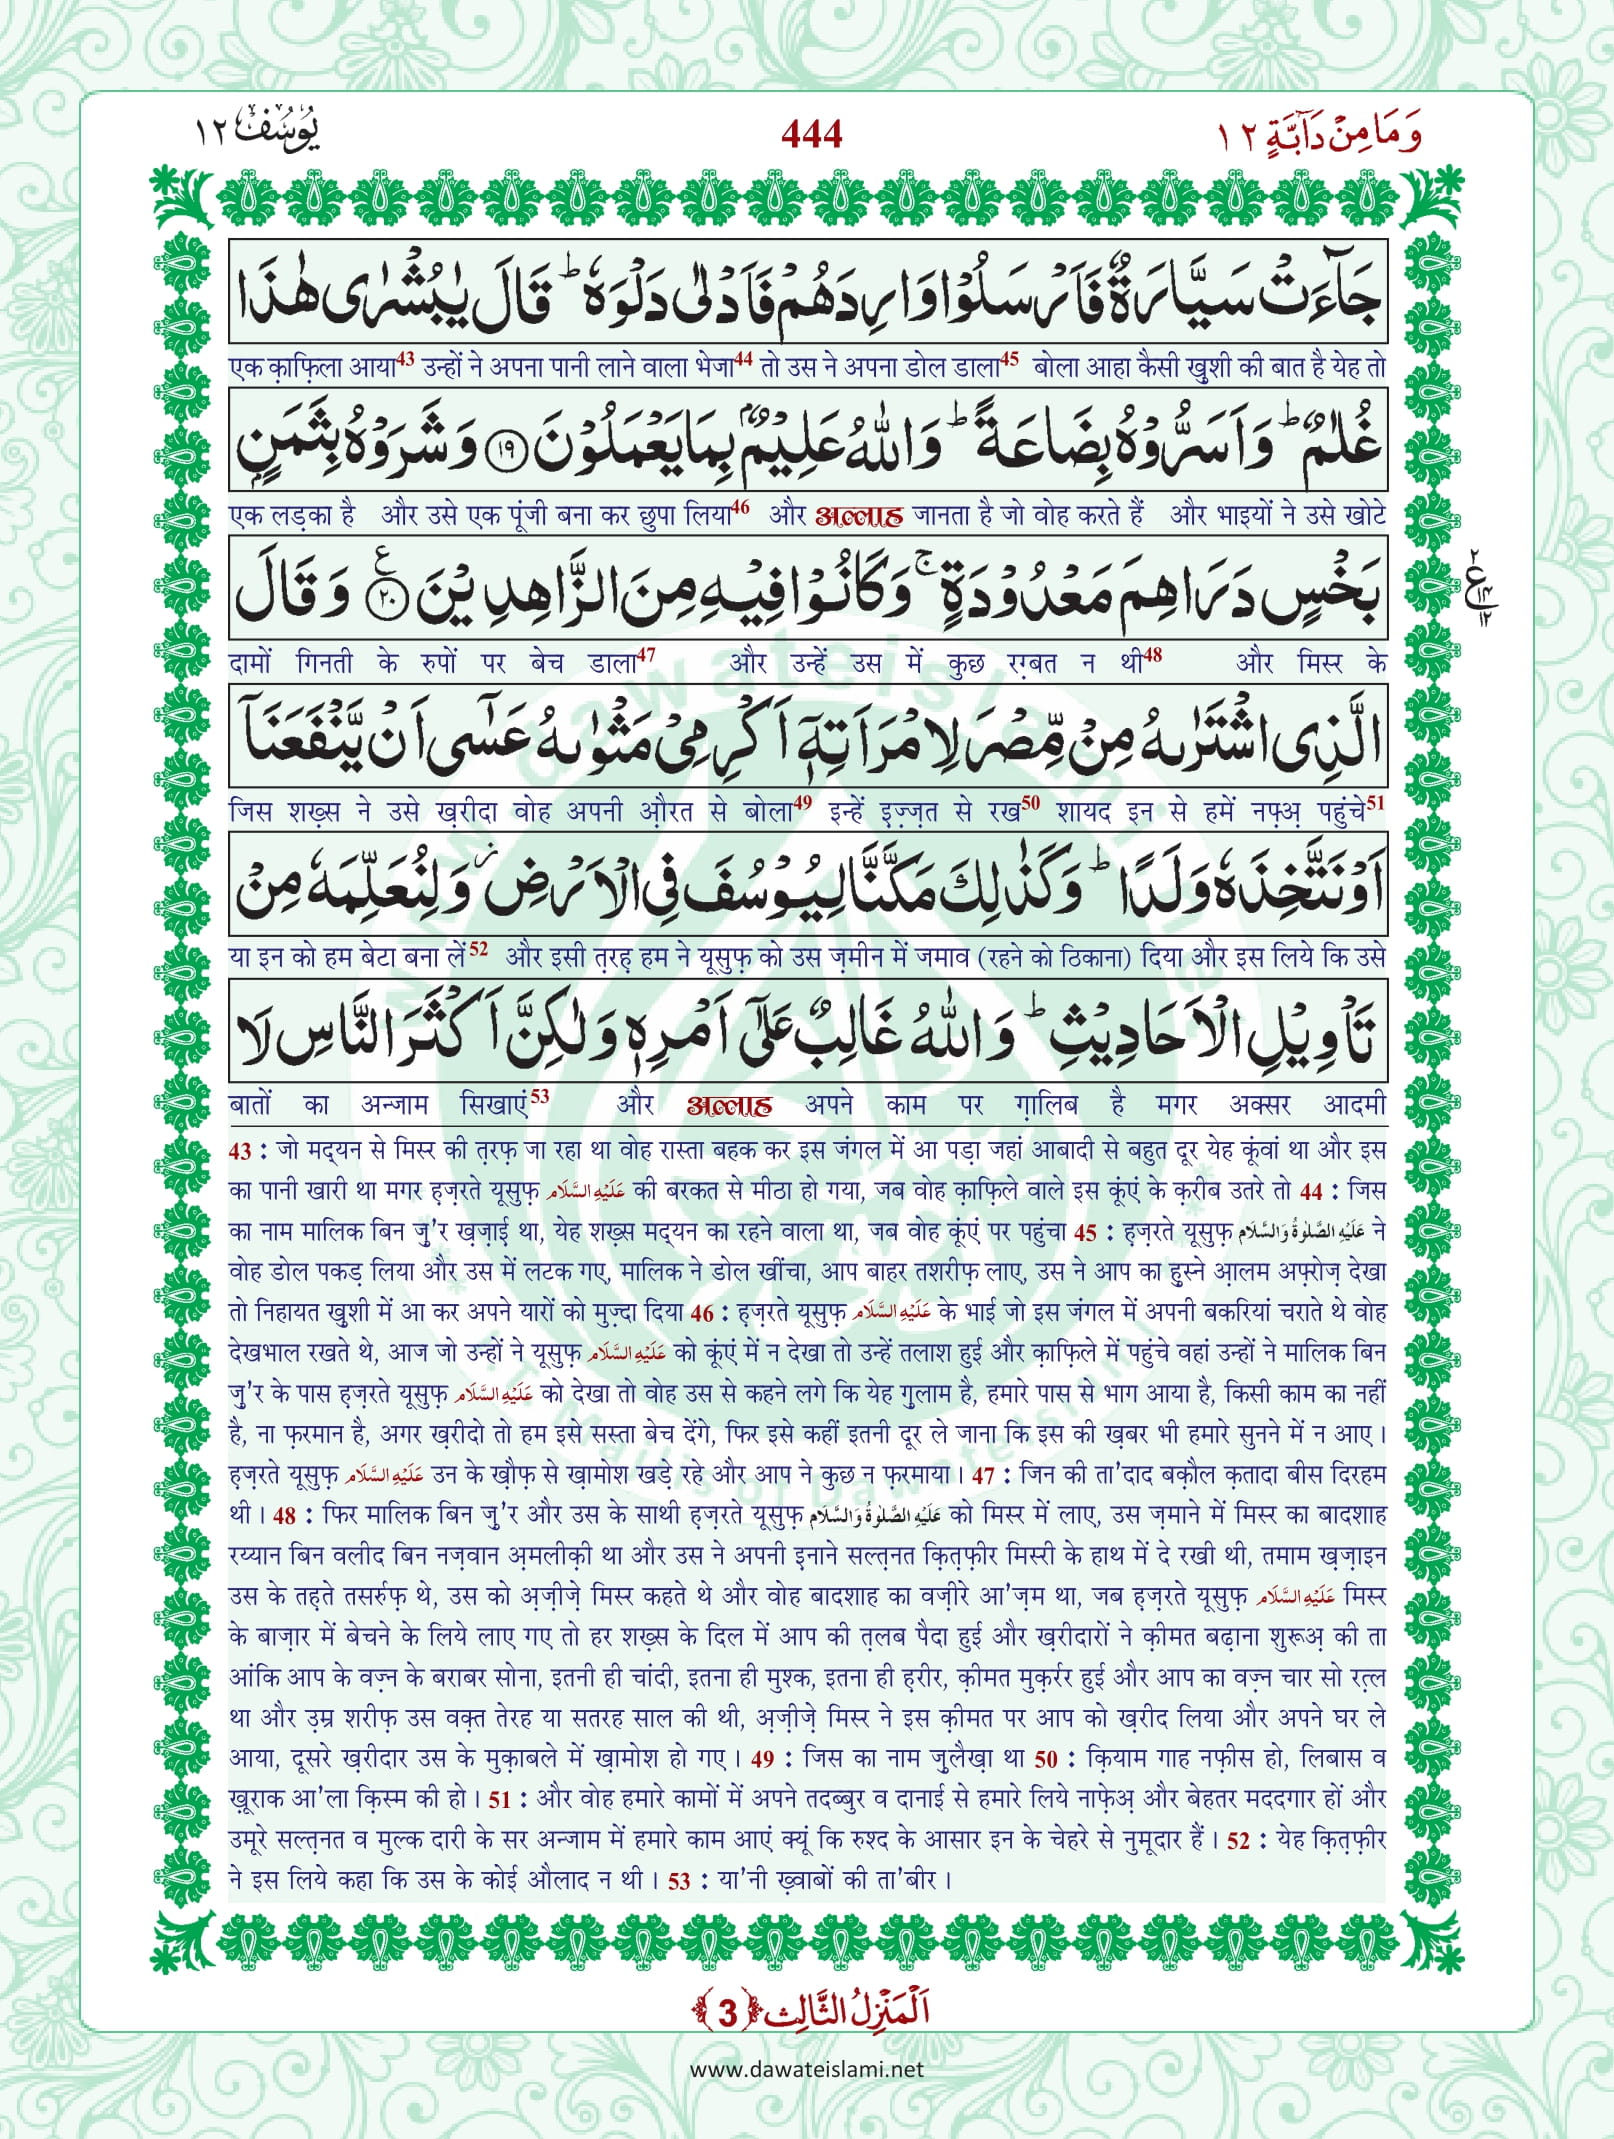 وَمَا مِنْ دَآبَّةٍ ١٢
444
يُوْسُف ١٢
جَآءَتْ سَيَّارَةٌ فَاَرْسَلُوْا وَارِدَهُمْ فَاَدْلٰى دَلْوَهٗ ؕ قَالَ يٰبُشْرٰى هٰذَا
एक क़ाफ़िला आया43 उन्हों ने अपना पानी लाने वाला भेजा44 तो उस ने अपना डोल डाला45 बोला आहा कैसी ख़ुशी की बात है येह तो
غُلٰمٌ ؕ وَاَسَرُّوْهُ بِضَاعَةً ؕ وَاللّٰهُ عَلِيْمٌۢ بِمَا يَعْمَلُوْنَ ﴿۱۹﴾ وَشَرَوْهُ بِثَمَنٍۭ
एक लड़का है और उसे एक पूंजी बना कर छुपा लिया46 और अल्लाह जानता है जो वोह करते हैं और भाइयों ने उसे खोटे
بَخْسٍ دَرَاهِمَ مَعْدُوْدَةٍ ۚ وَكَانُوْا فِيْهِ مِنَ الزَّاهِدِيْنَ ﴿۲۰﴾ ع وَقَالَ
۲ ع ۱۴ ۱۲
दामों गिनती के रुपों पर बेच डाला47 और उन्हें उस में कुछ रग़्बत न थी48 और मिस्र के
الَّذِى اشْتَرٰىهُ مِنْ مِّصْرَ لِامْرَاَتِهٖۤ اَكْرِمِىْ مَثْوٰىهُ عَسٰۤى اَنْ يَّنْفَعَنَاۤ
जिस शख़्स ने उसे ख़रीदा वोह अपनी औ़रत से बोला49 इन्हें इ़ज़्ज़त से रख50 शायद इन से हमें नफ़्अ़ पहुंचे51
اَوْ نَتَّخِذَهٗ وَلَدًا ؕ وَكَذٰلِكَ مَكَّنَّا لِيُوْسُفَ فِى الْاَرْضِ ۫ وَلِنُعَلِّمَهٗ مِنْ
या इन को हम बेटा बना लें52 और इसी त़रह़ हम ने यूसुफ़ को उस ज़मीन में जमाव (रहने को ठिकाना) दिया और इस लिये कि उसे
تَاْوِيْلِ الْاَحَادِيْثِ ؕ وَاللّٰهُ غَالِبٌ عَلٰۤى اَمْرِهٖ وَلٰكِنَّ اَكْثَرَ النَّاسِ لَا
बातों का अन्जाम सिखाएं53 और अल्लाह अपने काम पर ग़ालिब है मगर अक्सर आदमी
43 : जो मद्यन से मिस्र की त़रफ़ जा रहा था वोह रास्ता बहक कर इस जंगल में आ पड़ा जहां आबादी से बहुत दूर येह कूंवां था और इस
का पानी खारी था मगर ह़ज़रते यूसुफ़ عَلَيْهِ السَّلَام की बरकत से मीठा हो गया, जब वोह क़ाफ़िले वाले इस कूंएं के क़रीब उतरे तो 44 : जिस
का नाम मालिक बिन ज़ु'र ख़ज़ाई था, येह शख़्स मद्यन का रहने वाला था, जब वोह कूंएं पर पहुंचा 45 : ह़ज़रते यूसुफ़ عَلَيْهِ الصَّلٰوةُ وَالسَّلَام ने
वोह डोल पकड़ लिया और उस में लटक गए, मालिक ने डोल खींचा, आप बाहर तशरीफ़ लाए, उस ने आप का हु़स्ने आ़लम अफ़्रोज़ देखा
तो निहायत ख़ुशी में आ कर अपने यारों को मुज़्दा दिया 46 : ह़ज़रते यूसुफ़ عَلَيْهِ السَّلَام के भाई जो इस जंगल में अपनी बकरियां चराते थे वोह
देखभाल रखते थे, आज जो उन्हों ने यूसुफ़ عَلَيْهِ السَّلَام को कूंएं में न देखा तो उन्हें तलाश हुई और क़ाफ़िले में पहुंचे वहां उन्हों ने मालिक बिन
ज़ु'र के पास ह़ज़रते यूसुफ़ عَلَيْهِ السَّلَام को देखा तो वोह उस से कहने लगे कि येह ग़ुलाम है, हमारे पास से भाग आया है, किसी काम का नहीं
है, ना फ़रमान है, अगर ख़रीदो तो हम इसे सस्ता बेच देंगे, फिर इसे कहीं इतनी दूर ले जाना कि इस की ख़बर भी हमारे सुनने में न आए।
ह़ज़रते यूसुफ़ عَلَيْهِ السَّلَام उन के ख़ौफ़ से ख़ामोश खड़े रहे और आप ने कुछ न फ़रमाया। 47 : जिन की ता'दाद बक़ौल क़तादा बीस दिरहम
थी। 48 : फिर मालिक बिन ज़ु'र और उस के साथी ह़ज़रते यूसुफ़ عَلَيْهِ الصَّلٰوةُ وَالسَّلَام को मिस्र में लाए, उस ज़माने में मिस्र का बादशाह
रय्यान बिन वलीद बिन नज़्वान अ़मलीक़ी था और उस ने अपनी इ़नाने सल्त़नत क़ित़फ़ीर मिस्री के हाथ में दे रखी थी, तमाम ख़ज़ाइन
उस के तह़ते तसर्रुफ़ थे, उस को अ़ज़ीज़े मिस्र कहते थे और वोह बादशाह का वज़ीरे आ'ज़म था, जब ह़ज़रते यूसुफ़ عَلَيْهِ السَّلَام मिस्र
के बाज़ार में बेचने के लिये लाए गए तो हर शख़्स के दिल में आप की त़लब पैदा हुई और ख़रीदारों ने क़ीमत बढ़ाना शुरूअ़ की ता
आंकि आप के वज़्न के बराबर सोना, इतनी ही चांदी, इतना ही मुश्क, इतना ही ह़रीर, क़ीमत मुक़र्रर हुई और आप का वज़्न चार सो रत़्ल
था और उ़म्र शरीफ़ उस वक़्त तेरह या सतरह साल की थी, अ़ज़ीज़े मिस्र ने इस क़ीमत पर आप को ख़रीद लिया और अपने घर ले
आया, दूसरे ख़रीदार उस के मुक़ाबले में ख़ामोश हो गए। 49 : जिस का नाम ज़ुलैख़ा था 50 : क़ियाम गाह नफ़ीस हो, लिबास व
ख़ूराक आ'ला क़िस्म की हो। 51 : और वोह हमारे कामों में अपने तदब्बुर व दानाई से हमारे लिये नाफ़ेअ़ और बेहतर मददगार हों और
उमूरे सल्त़नत व मुल्क दारी के सर अन्जाम में हमारे काम आएं क्यूं कि रुश्द के आसार इन के चेहरे से नुमूदार हैं। 52 : येह क़ित़फ़ीर
ने इस लिये कहा कि उस के कोई औलाद न थी। 53 : या'नी ख़्वाबों की ता'बीर।
اَلْمَنْزِلُ الثَّالِث ﴿3﴾
www.dawateislami.net